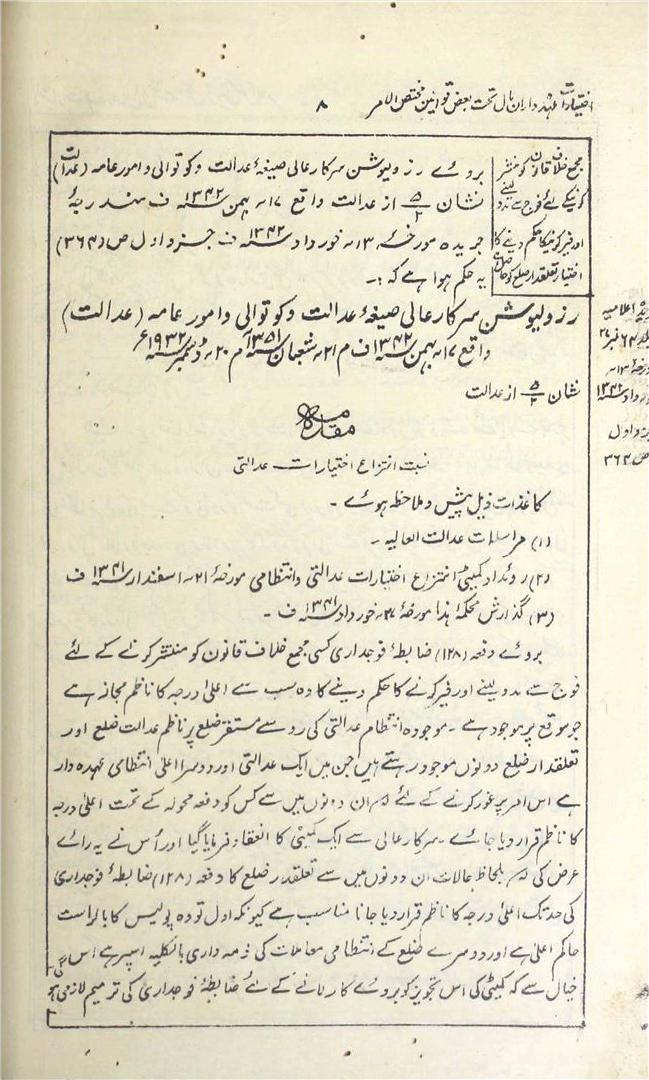 اختیارات عہدہ داران مال تحت بعض قوانین مختص الامر
۸
مجمع خلاف قانون کو منتشر
کرنیکے لئے فوج سے مدد لینے
اور فیر کرنیکا حکم دینے کا
اختیار تعلقدار ضلع کو حاصل ہے
بروئے رزولیوشن سرکار عالی صیغۂ عدالت و کوتوالی و امور عامہ (عدالت)
نشان ۵/۲ از عدالت واقع ۱۷؍ بہمن ۱۳۴۲؁ ف مندرجۂ
جریدہ مورخۂ ۱۳؍ خورداد ۱۳۴۲؁ ف جزو اول ص (۳۶۴)
یہ حکم ہوا ہے کہ :۔
رزولیوشن سرکار عالی صیغۂ عدالت و کوتوالی و امور عامہ (عدالت)
واقع ۱۷؍ بہمن ۱۳۴۲؁ ف م ۲۱؍ شعبان ۱۳۵۱؁ م ۲۰؍ ڈسمبر ۱۹۳۲؁ء
نشان ۵/۲ از عدالت
جلد ۶۴ نمبر ۲۷
خورداد ۱۳۴۲؁
جزو اول
ص ۳۶۴
مقدمہ
نسبت انتزاع اختیارات عدالتی
کاغذات ذیل پیش و ملاحظہ ہوئے ۔
(۱) مراسلات عدالت العالیہ ۔
(۲) روئداد کمیٹی انتزاع اختیارات عدالتی و انتظامی مورخۂ ۲۱؍ اسفندار ۱۳۴۱؁ ف
(۳) گذارش محکمۂ ہذا مورخۂ ۲۷؍ خورداد ۱۳۴۱؁ ف ۔
بروئے دفعہ (۱۲۸) ضابطۂ فوجداری کسی مجمع خلاف قانون کو منتشر کرنے کے لئے
فوج سے مدد لینے اور فیر کرنے کا حکم دینے کا وہ سب سے اعلیٰ درجہ کا ناظم مجاز ہے
جو موقع پر موجود ہے ۔ موجودہ انتظام عدالتی کی رو سے مستقر ضلع پر ناظم عدالت ضلع اور
تعلقدار ضلع دونوں موجود رہتے ہیں جن میں ایک عدالتی اور دوسرا اعلیٰ انتظامی عہدہ دار
ہے اس امر پر غور کرنے کے لئے کہ ان دونوں میں سے کس کو دفعہ محولہ کے تحت اعلیٰ درجہ
کا ناظم قرار دیا جائے ۔ سرکار عالی سے ایک کمیٹی کا انعقاد فرمایا گیا اور اُس نے یہ رائے
عرض کی کہ بلحاظ حالات ان دونوں میں سے تعلقدار ضلع کا دفعہ (۱۲۸) ضابطۂ فوجداری
کی حد تک اعلیٰ درجہ کا ناظم قرار دیا جانا مناسب ہے کیونکہ اول تو وہ پولیس کا بالراست
حاکم اعلیٰ ہے اور دوسرے ضلع کے انتظامی معاملات کی ذمہ داری بالکلیہ اسپر ہے اس
خیال سے کہ کمیٹی کی اس تجویز کو بروئے کار لانے کے لئے ضابطۂ فوجداری کی ترمیم لازمی ہوگی